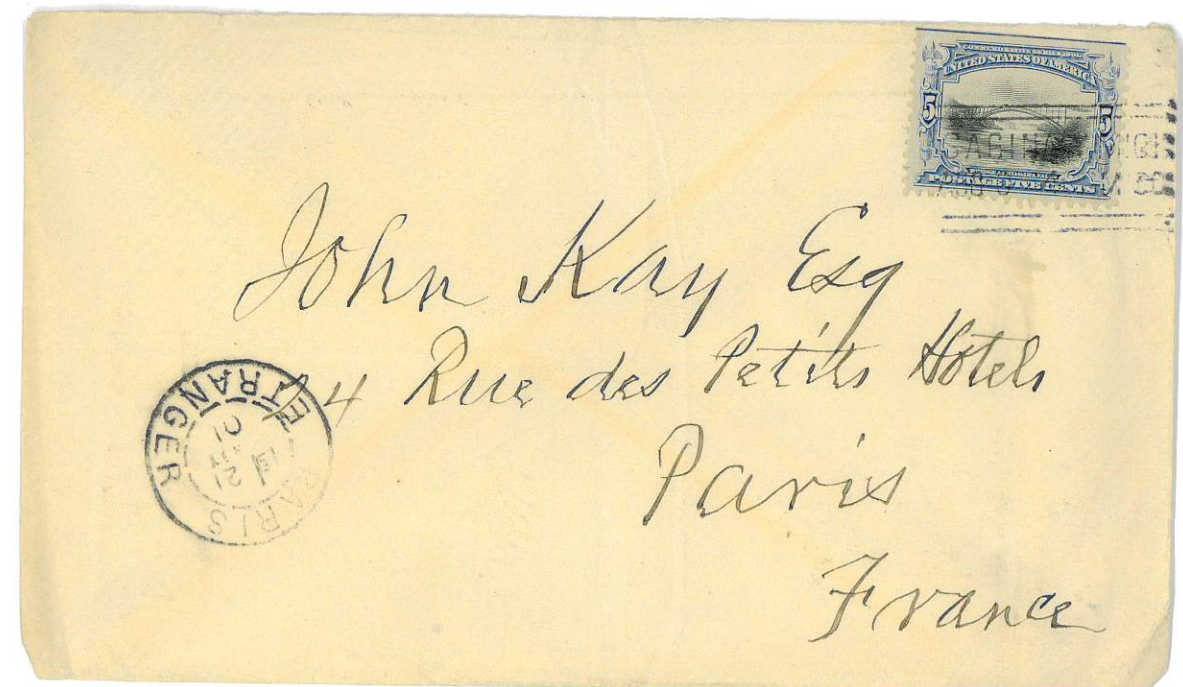 COMMEMORATIVE SERIES 1901
UNITED STATES OF AMERICA
5 5
SAGINAW MICH
POSTAGE FIVE CENTS
John Kay Esq
4 Rue des Petits Hotels
Paris
France
PARIS
ETRANGER
21
01